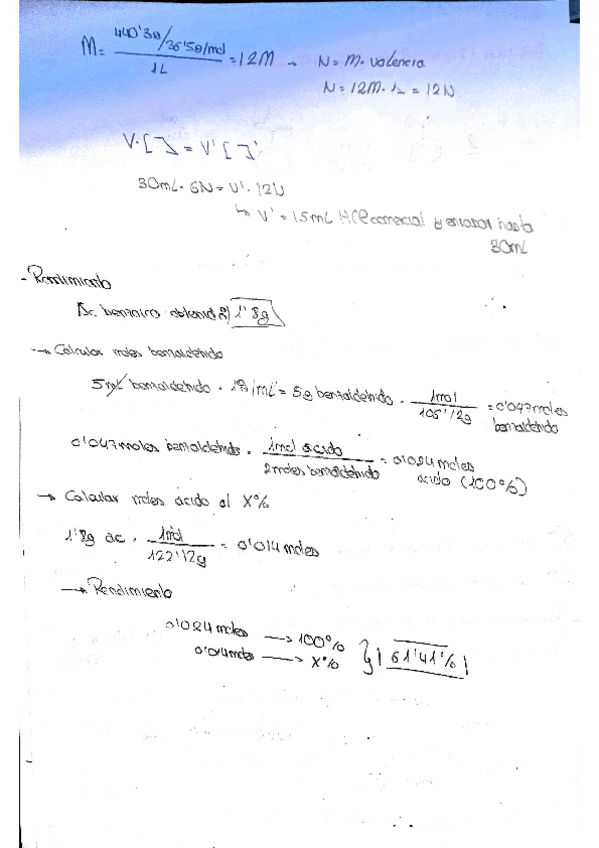 M = 440'3g/36'5g/mol / 1L = 12M → N = M · valencia
N = 12M · 1 = 12N
V · [ ] = V' [ ]'
30mL · 6N = V' · 12N
↳ V' = 15mL HCl comercial y enrasar hasta
30mL
- Rendimiento
Ác. benzoico obtenido 1'8g
→ Calcular moles benzaldehído
5mL benzaldehído · 1g/mL = 5g benzaldehído · 1mol / 106'12g = 0'047moles
benzaldehído
0'047moles benzaldehído · 1mol ácido / 2moles benzaldehído = 0'024moles
ácido (100%)
→ Calcular moles ácido al X%
1'8g ác · 1mol / 122'12g = 0'014moles
→ Rendimiento
0'024moles → 100%
0'014moles → X% } 61'41%